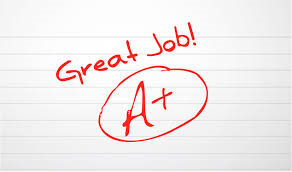 Great Job!
A+